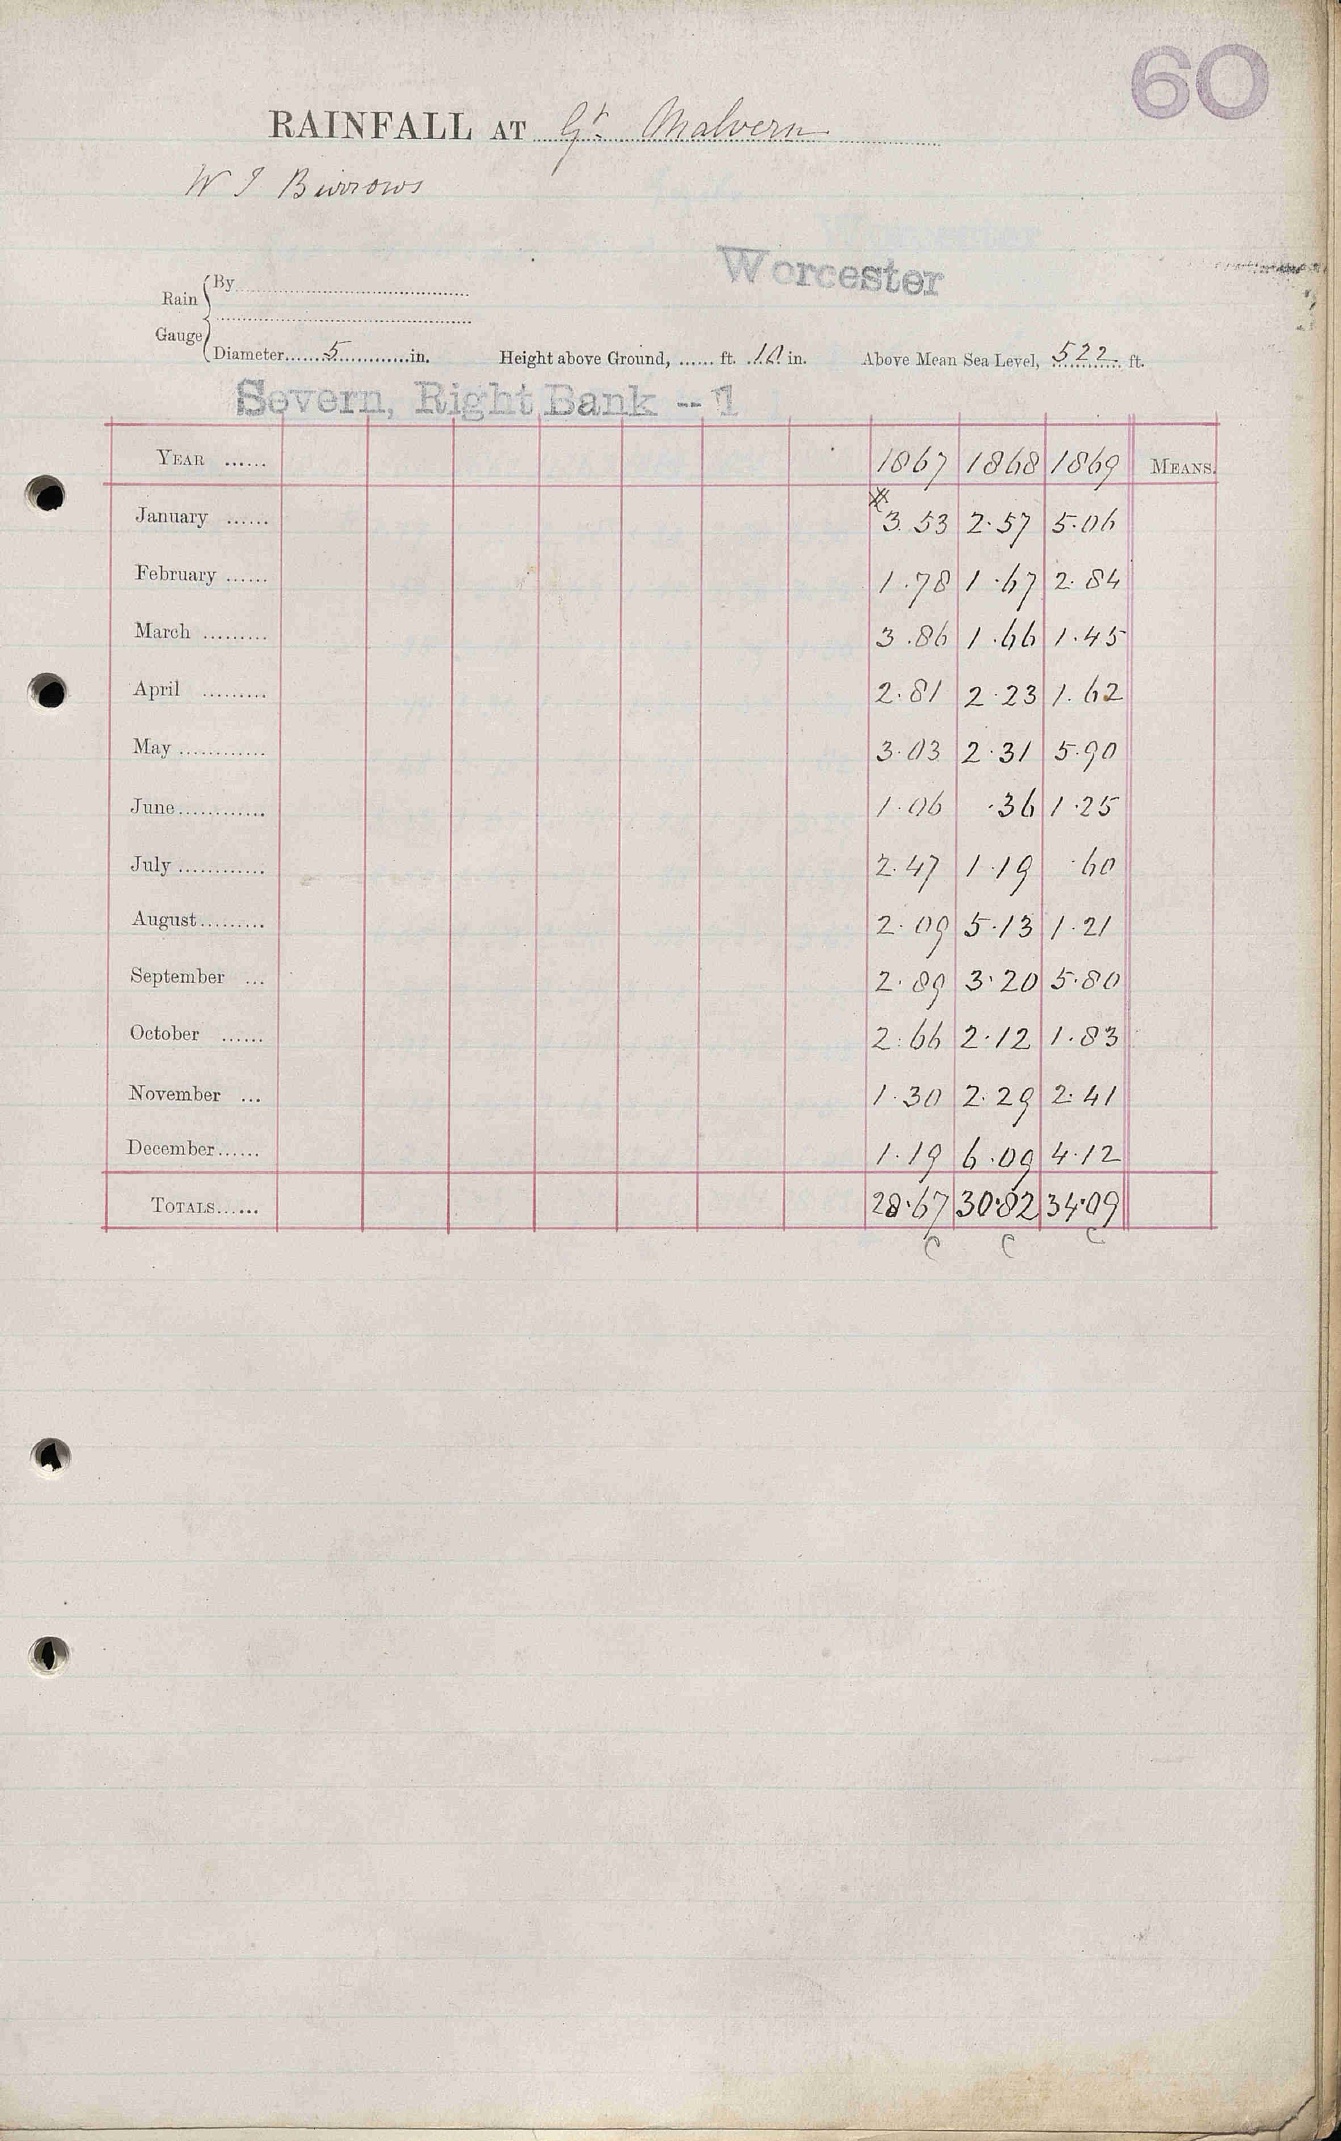 60
RAINFALL AT Gt. Malvern
W J Burrows
Worcester
Rain Gauge
By
Diameter 5 in. Height above Ground, ...... ft. 10 in. Above Mean Sea Level, 522 ft.
Severn, Right Bank -- 1
YEAR ...... 1867 1868 1869 MEANS.
January ...... 3.53 2.57 5.06
February ...... 1.78 1.67 2.84
March ......... 3.86 1.66 1.45
April ......... 2.81 2.23 1.62
May ............ 3.03 2.31 5.90
June ............ 1.06 .36 1.25
July ............ 2.47 1.19 .60
August ......... 2.09 5.13 1.21
September ... 2.89 3.20 5.80
October ...... 2.66 2.12 1.83
November ... 1.30 2.29 2.41
December ...... 1.19 6.09 4.12
TOTALS ...... 28.67 30.82 34.09
C C C